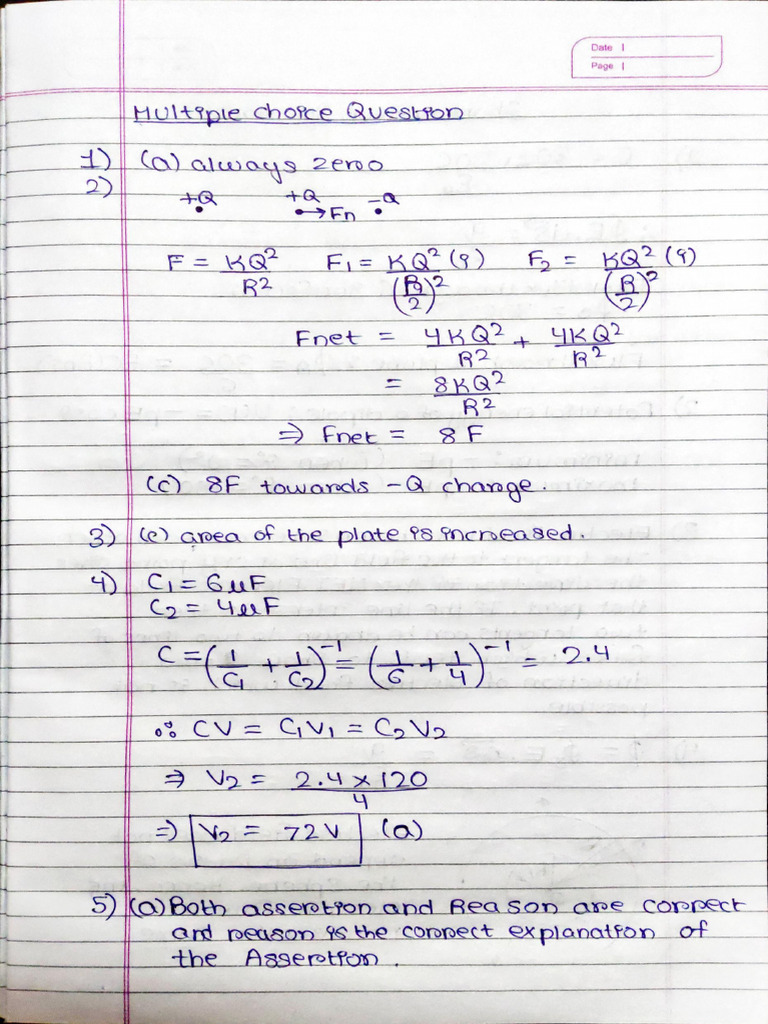 Date
Page
Multiple choice Question
1) (a) always zero
2) +Q +Q → Fn -Q
F = KQ²/R² F₁ = KQ²(9)/(R/2)² F₂ = KQ²(9)/(R/2)²
Fnet = 4KQ²/R² + 4KQ²/R²
= 8KQ²/R²
⇒ Fnet = 8F
(c) 8F towards -Q change.
3) (c) area of the plate is increased.
4) C₁ = 6μF
C₂ = 4μF
C = (1/C₁ + 1/C₂)⁻¹ = (1/6 + 1/4)⁻¹ = 2.4
∴ CV = C₁V₁ = C₂V₂
⇒ V₂ = 2.4 × 120/4
⇒ V₂ = 72V (a)
5) (a) Both assertion and Reason are correct
and reason is the correct explanation of
the Assertion.